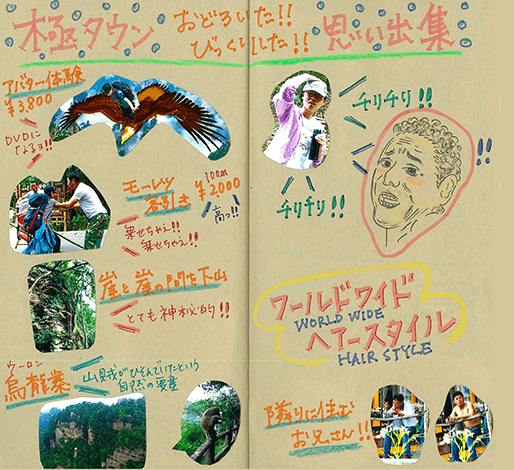 極タウン
おどろいた!!
びっくりした!!
思い出集
アバター体験
¥3,800
DVDに
なるヨ!!
モーレツ
客引き
100m
¥2000
高っ!!
乗せちゃえ!!
乗せちゃえ!!
崖と崖の間を下山
とても神秘的!!
ウーロン
烏龍寨
山賊がひそんでいたという
自然の要塞
チリチリ!!
チリチリ!!
!!
ワールドワイド
WORLD WIDE
ヘアースタイル
HAIR STYLE
隣りに住む
お兄さん!!